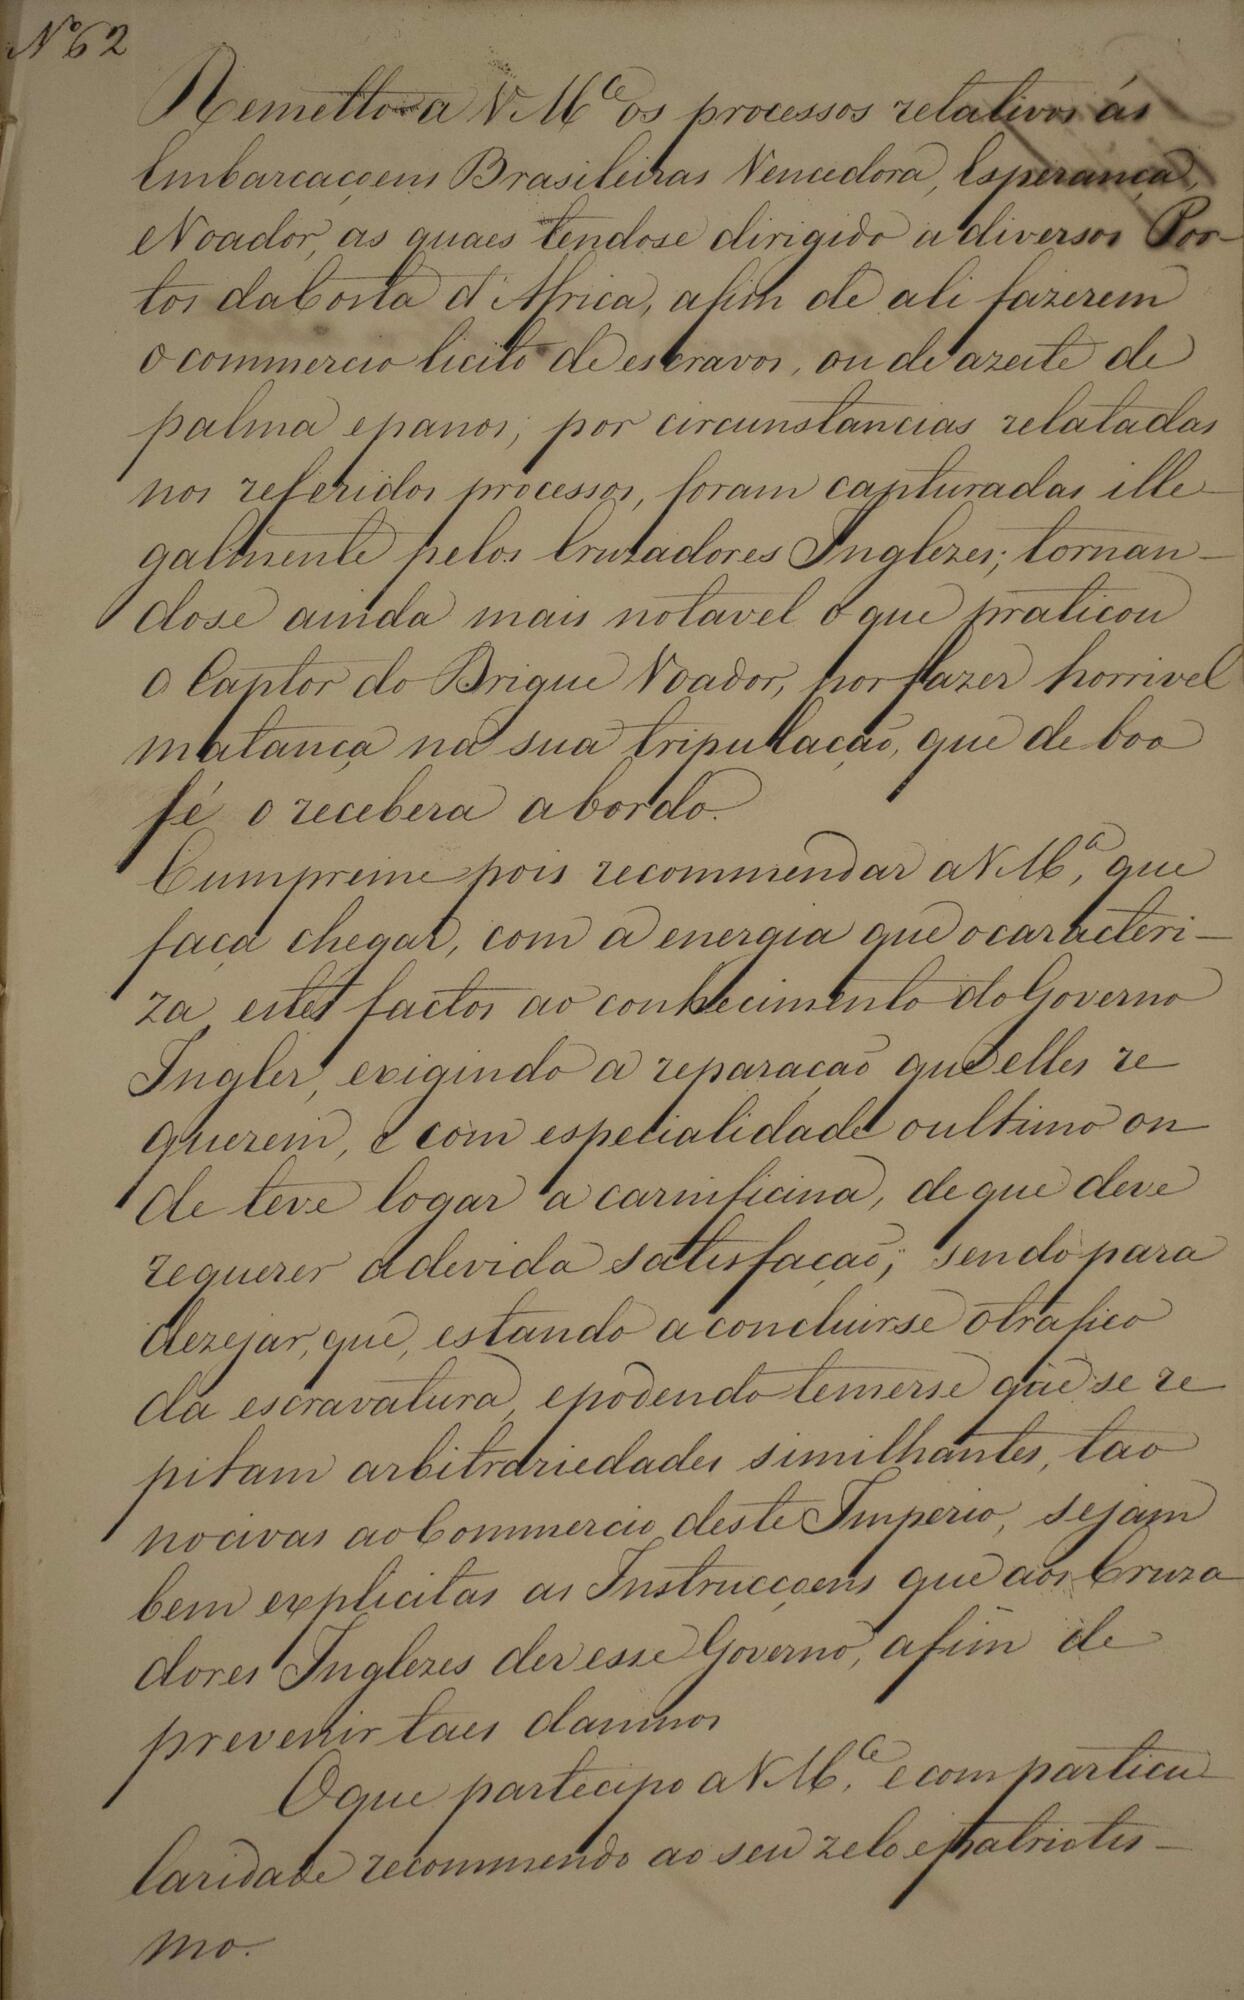 Nº 62
Remetto a V Mce os processos relativos ás
Embarcaçoens Brasileiras Vencedora, Esperança,
e Voador, as quaes tendose dirigido a diversos Por-
tos da Costa d'Africa, afim de ali fazerem
o commercio licito de escravos, ou de azeite de
palma e panos; por circunstancias relatadas
nos referidos processos, foram capturadas ille-
galmente pelos Cruzadores Inglezes; tornan-
dose ainda mais notavel o que praticou
o Captor do Brigue Voador, por fazer horrivel
matança na sua tripulação, que de boa
fé o recebera a bordo.
Cumpreme pois recommendar a V Mce, que
faça chegar, com a energia que o caracteri-
za, estes factos ao conhecimento do Governo
Inglez, exigindo a reparação que elles re
querem, e com especialidade o ultimo on
de teve logar a carnificina, de que deve
requerer a devida satisfação; sendo para
dezejar, que, estando a concluirse o trafico
da escravatura, e podendo temerse que se re
pitam arbitrariedades similhantes, tao
nocivas ao Commercio deste Imperio, sejam
bem explicitas as Instrucçoens que aos Cruza
dores Inglezes der esse Governo, afim de
prevenir taes damnos
O que partecipo a V Mce, e com particu-
laridade recommendo ao seu zelo e patriotis-
mo.